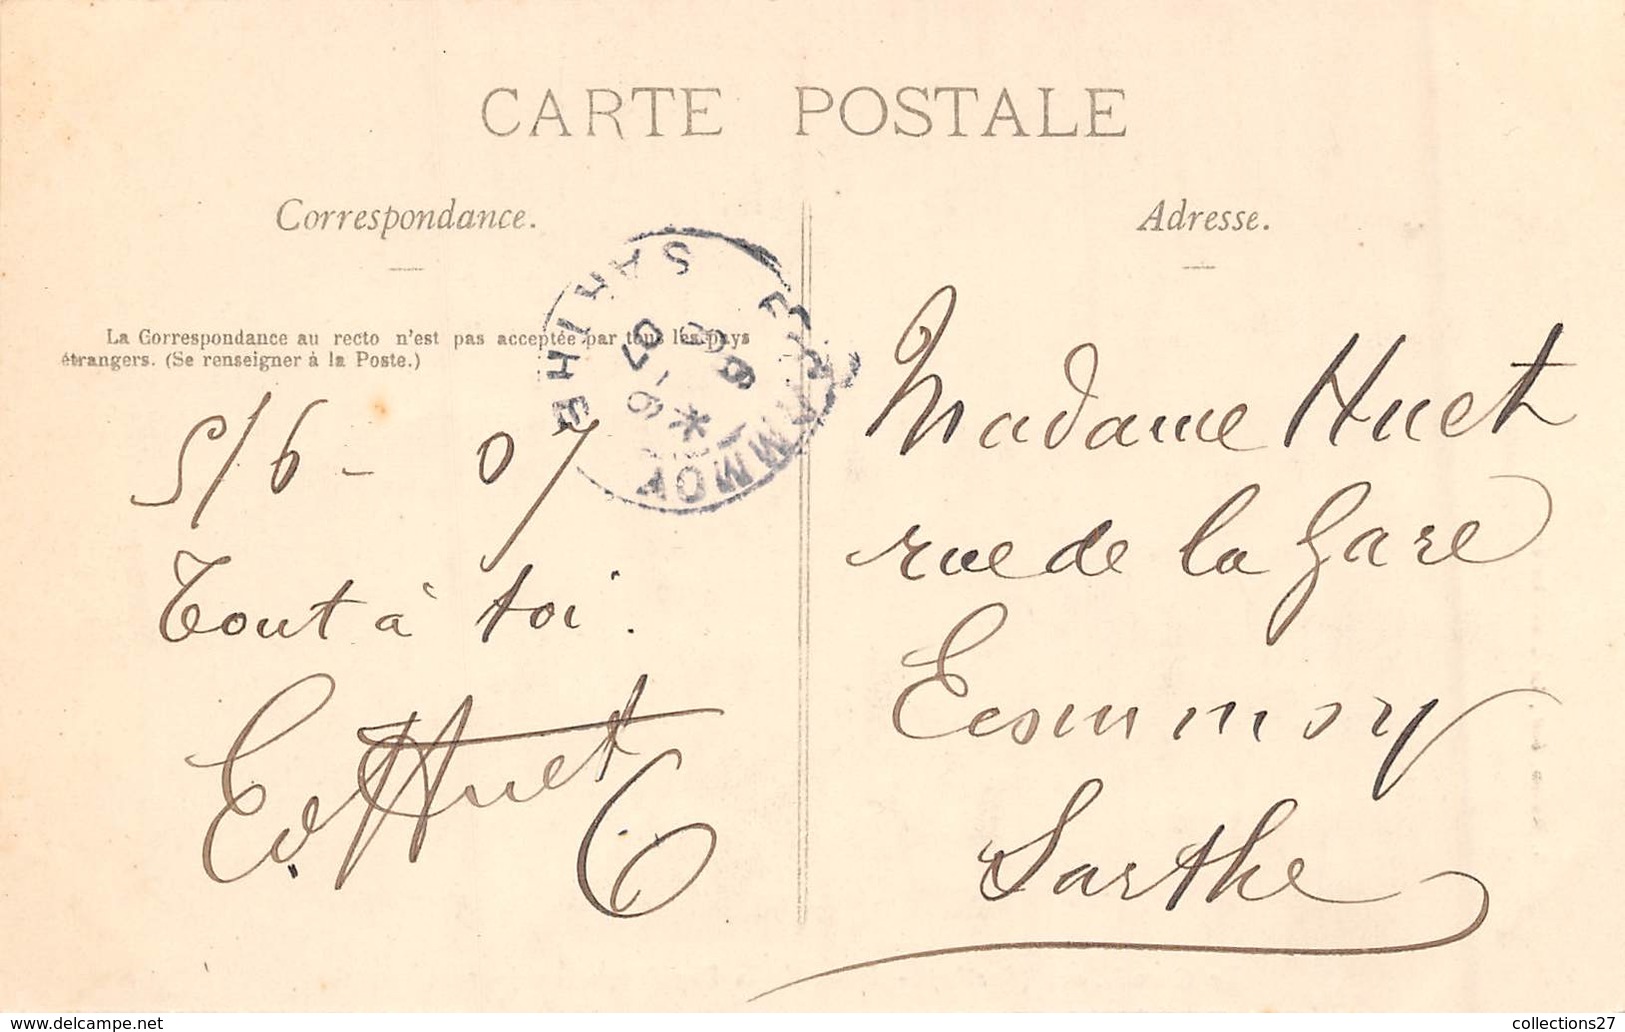 CARTE POSTALE
Correspondance.
La Correspondance au recto n'est pas acceptée par tous les pays
étrangers. (Se renseigner à la Poste.)
5/6 - 07
Tout à toi.
Ed Huet
Adresse.
Madame Huet
rue de la Gare
Ecommoy
Sarthe
ECOMMOY
SARTHE
6-6
07
collections27
www.delcampe.net